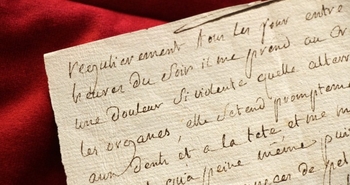 regulierement tous les jour entre
heures du soir il me prend au cr
une Douleur si violente quelle
les organes, elle setend prompteme
aux dents et a la tete et me
peine même puis